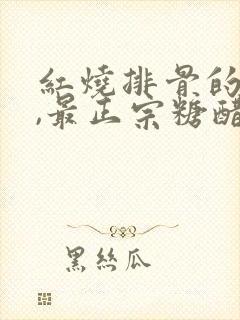 紅燒排骨的
,最正宗糖醋
黑絲瓜